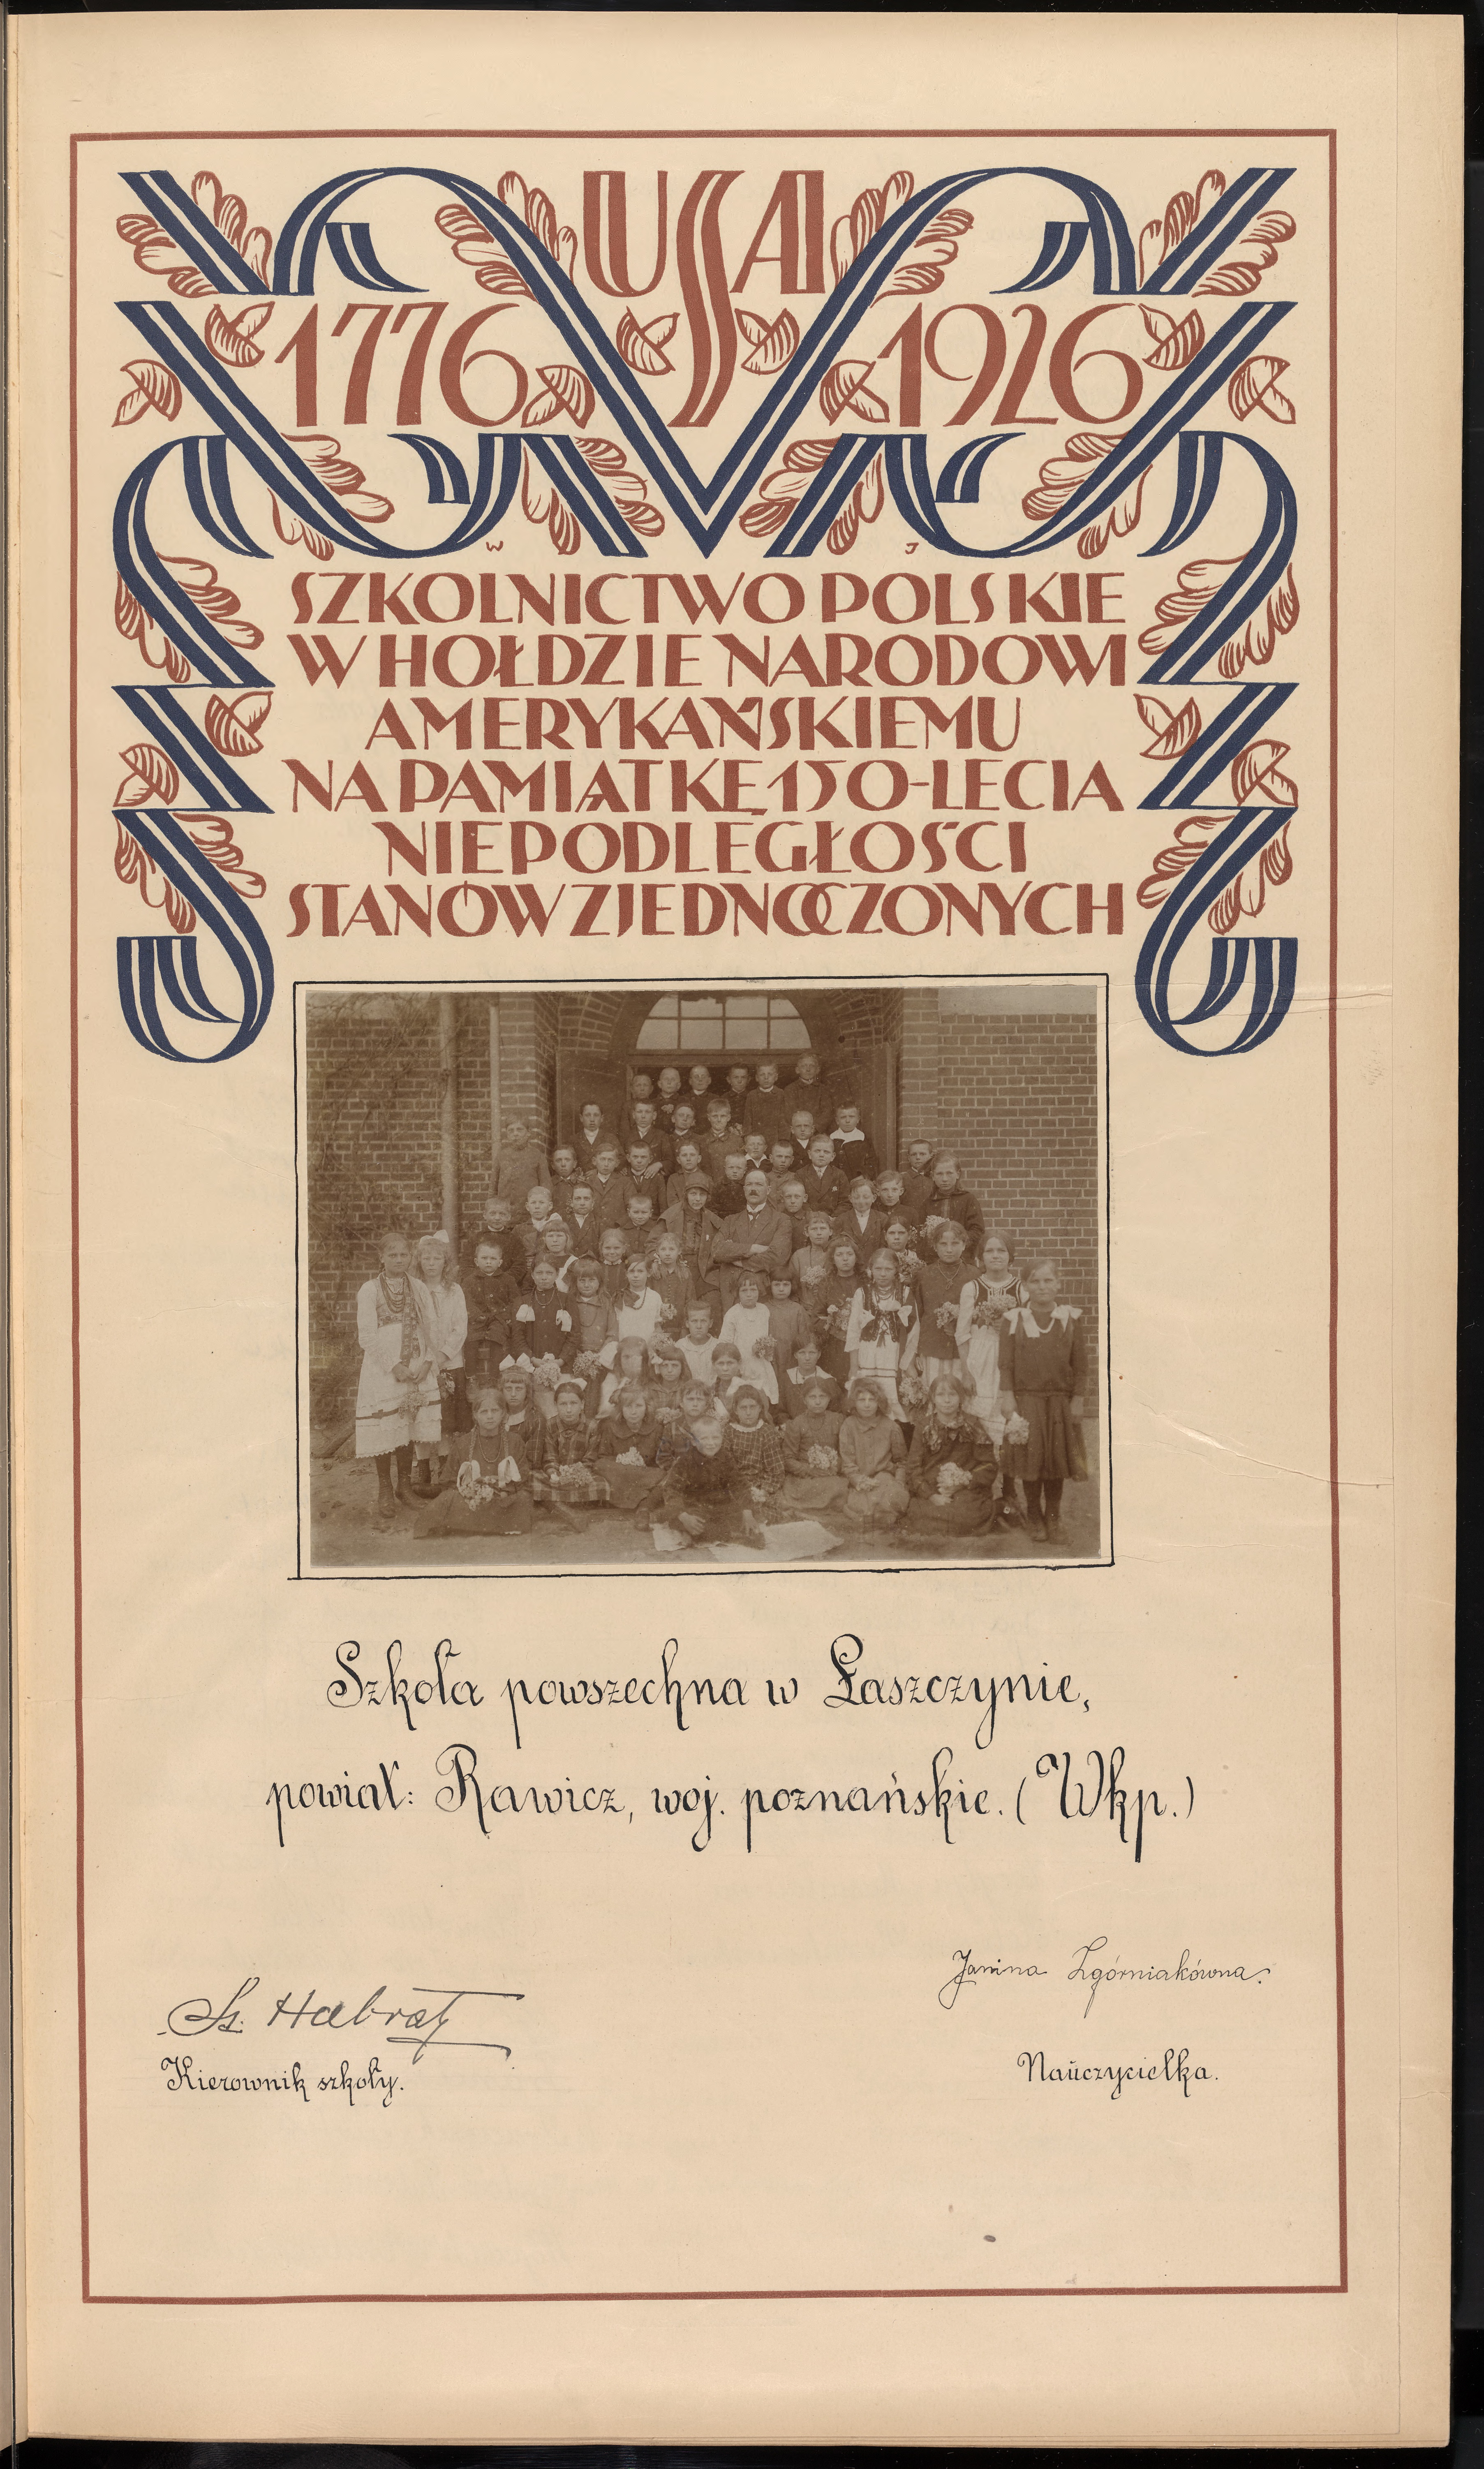 USA
1776 1926
W J
SZKOLNICTWO POLSKIE
W HOŁDZIE NARODOWI
AMERYKAŃSKIEMU
NA PAMIĄTKĘ 150-LECIA
NIEPODLEGŁOŚCI
STANÓW ZJEDNOCZONYCH
Szkoła powszechna w Łaszczynie,
powiat: Rawicz, woj. poznańskie. (Wkp.)
Janina Zgórniakówna.
St. Habrat
Kierownik szkoły.
Nauczycielka.